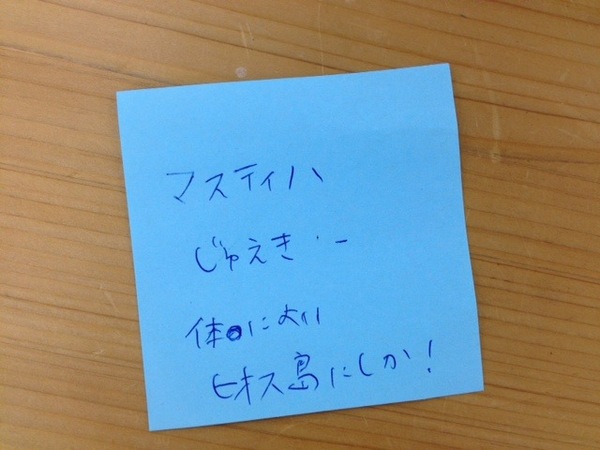 マスティハ
じゅえき・ー
体に よい
ヒオス島にしか!